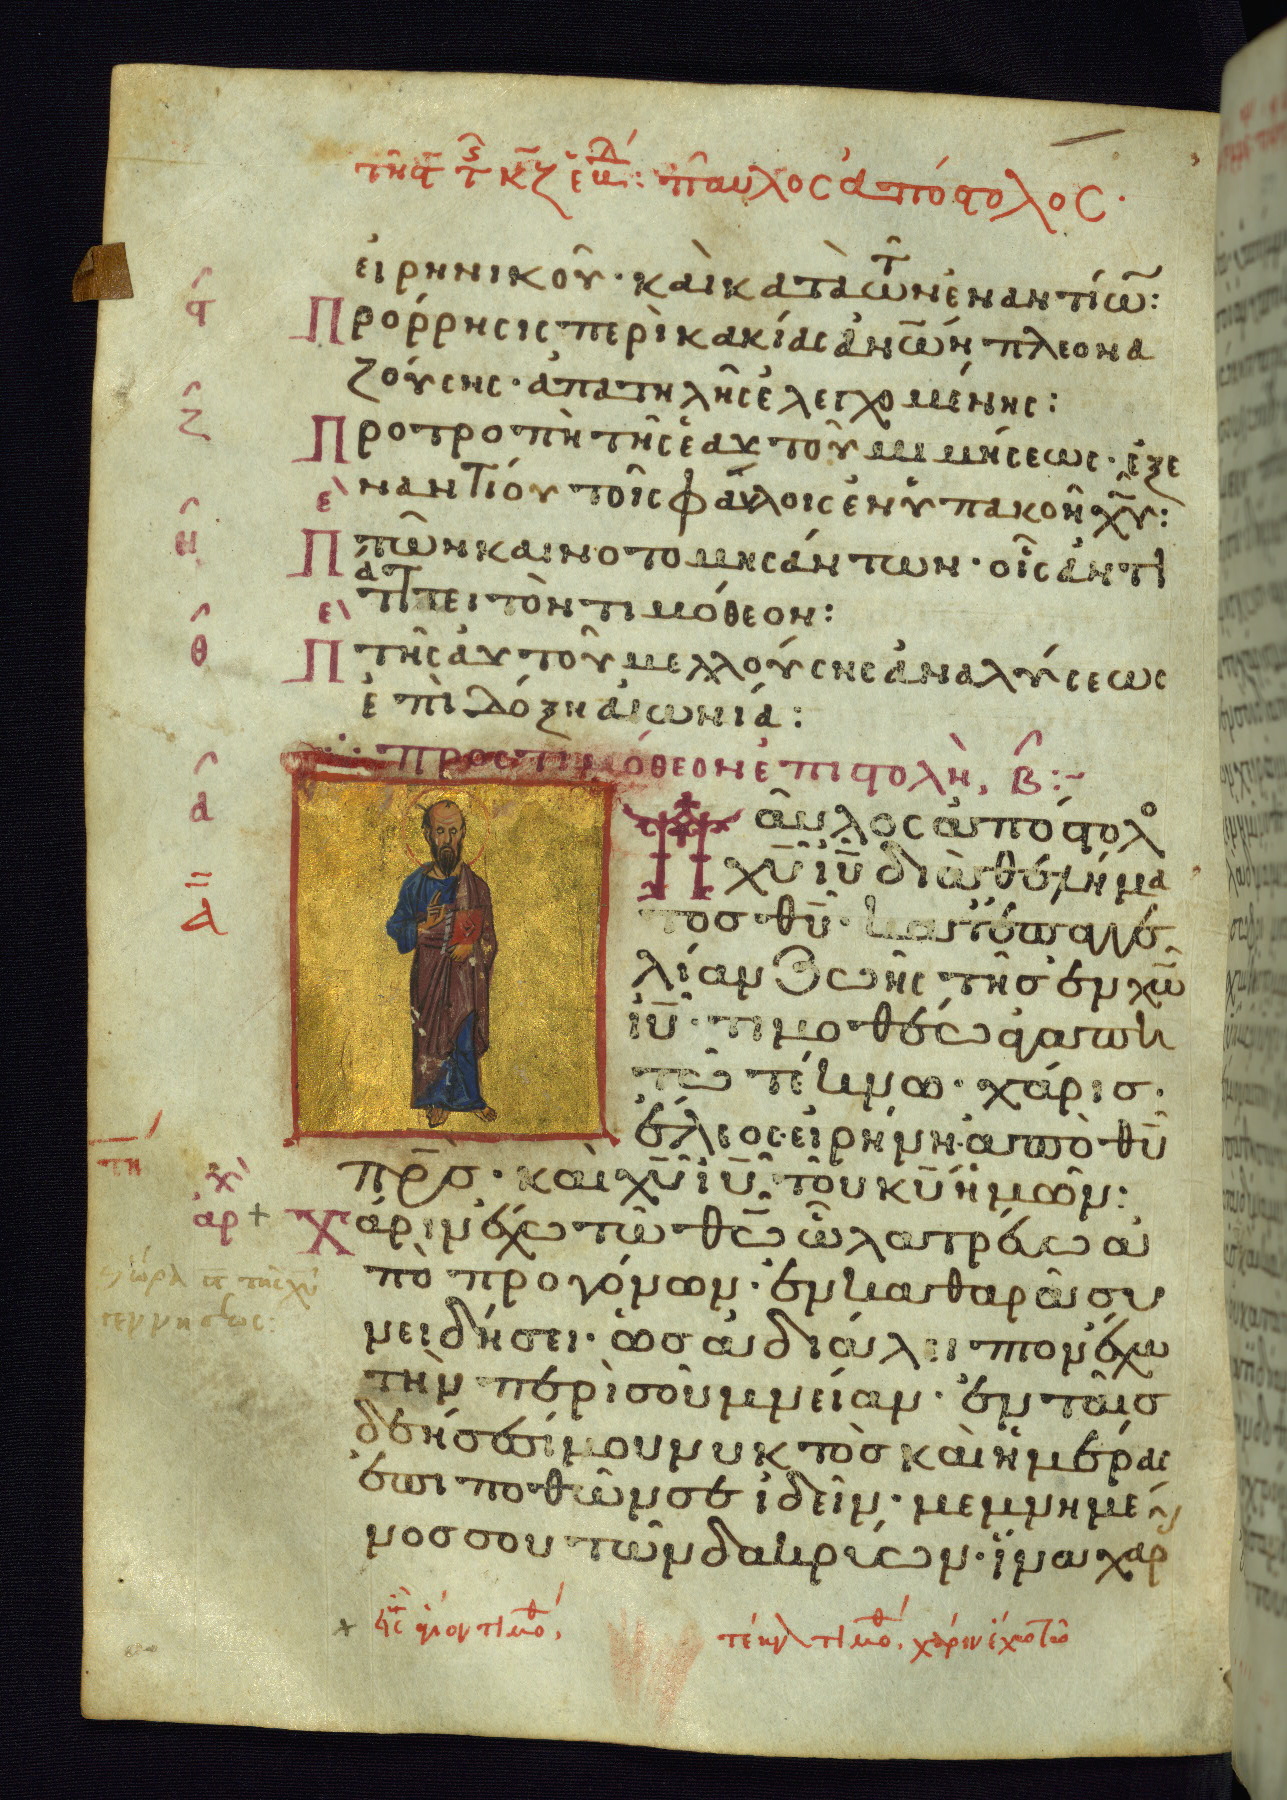 παυλος ἀπόστολος·
εἰρηνικοῦ· καὶ κατὰ τῶν ἐναντίω̅:
ϛ Πρόρρησις περὶ κακίας ἀν̅ω̅ν πλεονα
ζούσης· ἀπατηλῆς ἐλεγχομένης:
ζ Προτροπὴ τῆς ἑαυτοῦ μιμήσεως· ἐξε
ναντίου τοῖς φαύλοις ἐν ὑπακοῆ χ̅υ̅:
η Πε τῶν καινοτομησάντων· οἷς ἀντι
τάττει τὸν τιμόθεον:
θ Πε τῆς αὐτοῦ μελλούσης ἀναλύσεως
ἐπὶ δόξη αἰωνία:
προς τιμόθεον ἐπιστολὴ, β:~
α Παῦλος ἀπόστολο
χ̅υ̅ ι̅υ̅ διὰ θελήμα
τοσ θ̅υ̅· κατ ἐπαγγε
λίαν ζωῆς τῆσ ἐν χ̅ω̅
ι̅υ̅· τιμοθέω ἀγαπη
τῶ τέκνω· χάρισ·
ἔλεος· εἰρήνη· ἀπὸ θ̅υ̅
π̅ρ̅σ· καὶ χ̅υ̅ ι̅υ̅ τοῦ κ̅υ̅ ἡμῶν:
αρ + Χάριν ἔχω τῶ θ̅ω̅ ὧ λατρεύω ἀ
πὸ προγόνων· ἐν καθαρᾶι συ
νειδήσει· ὡσ ἀδιάλειπτον ἔχω
τὴν περὶ σοῦ μνείαν· ἐν ταῖσ
δεήσεσί μου νυκτὸσ καὶ ἡμέρας
ἐπιποθῶν σε ἰδεῖν· μεμνημέ
νοσ σου τῶν δακρύων· ἵνα χαρ
τέκν τιμοθ, χάριν ἔχω τῶ